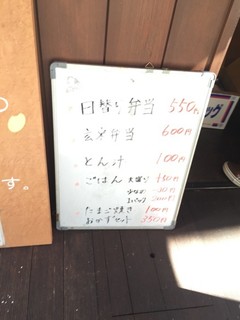 日替り弁当 550円
玄米弁当 600円
とん汁 100円
ごはん 大盛り 150円
たまご焼き 100円
おかずセット 350円
す。
ッグ